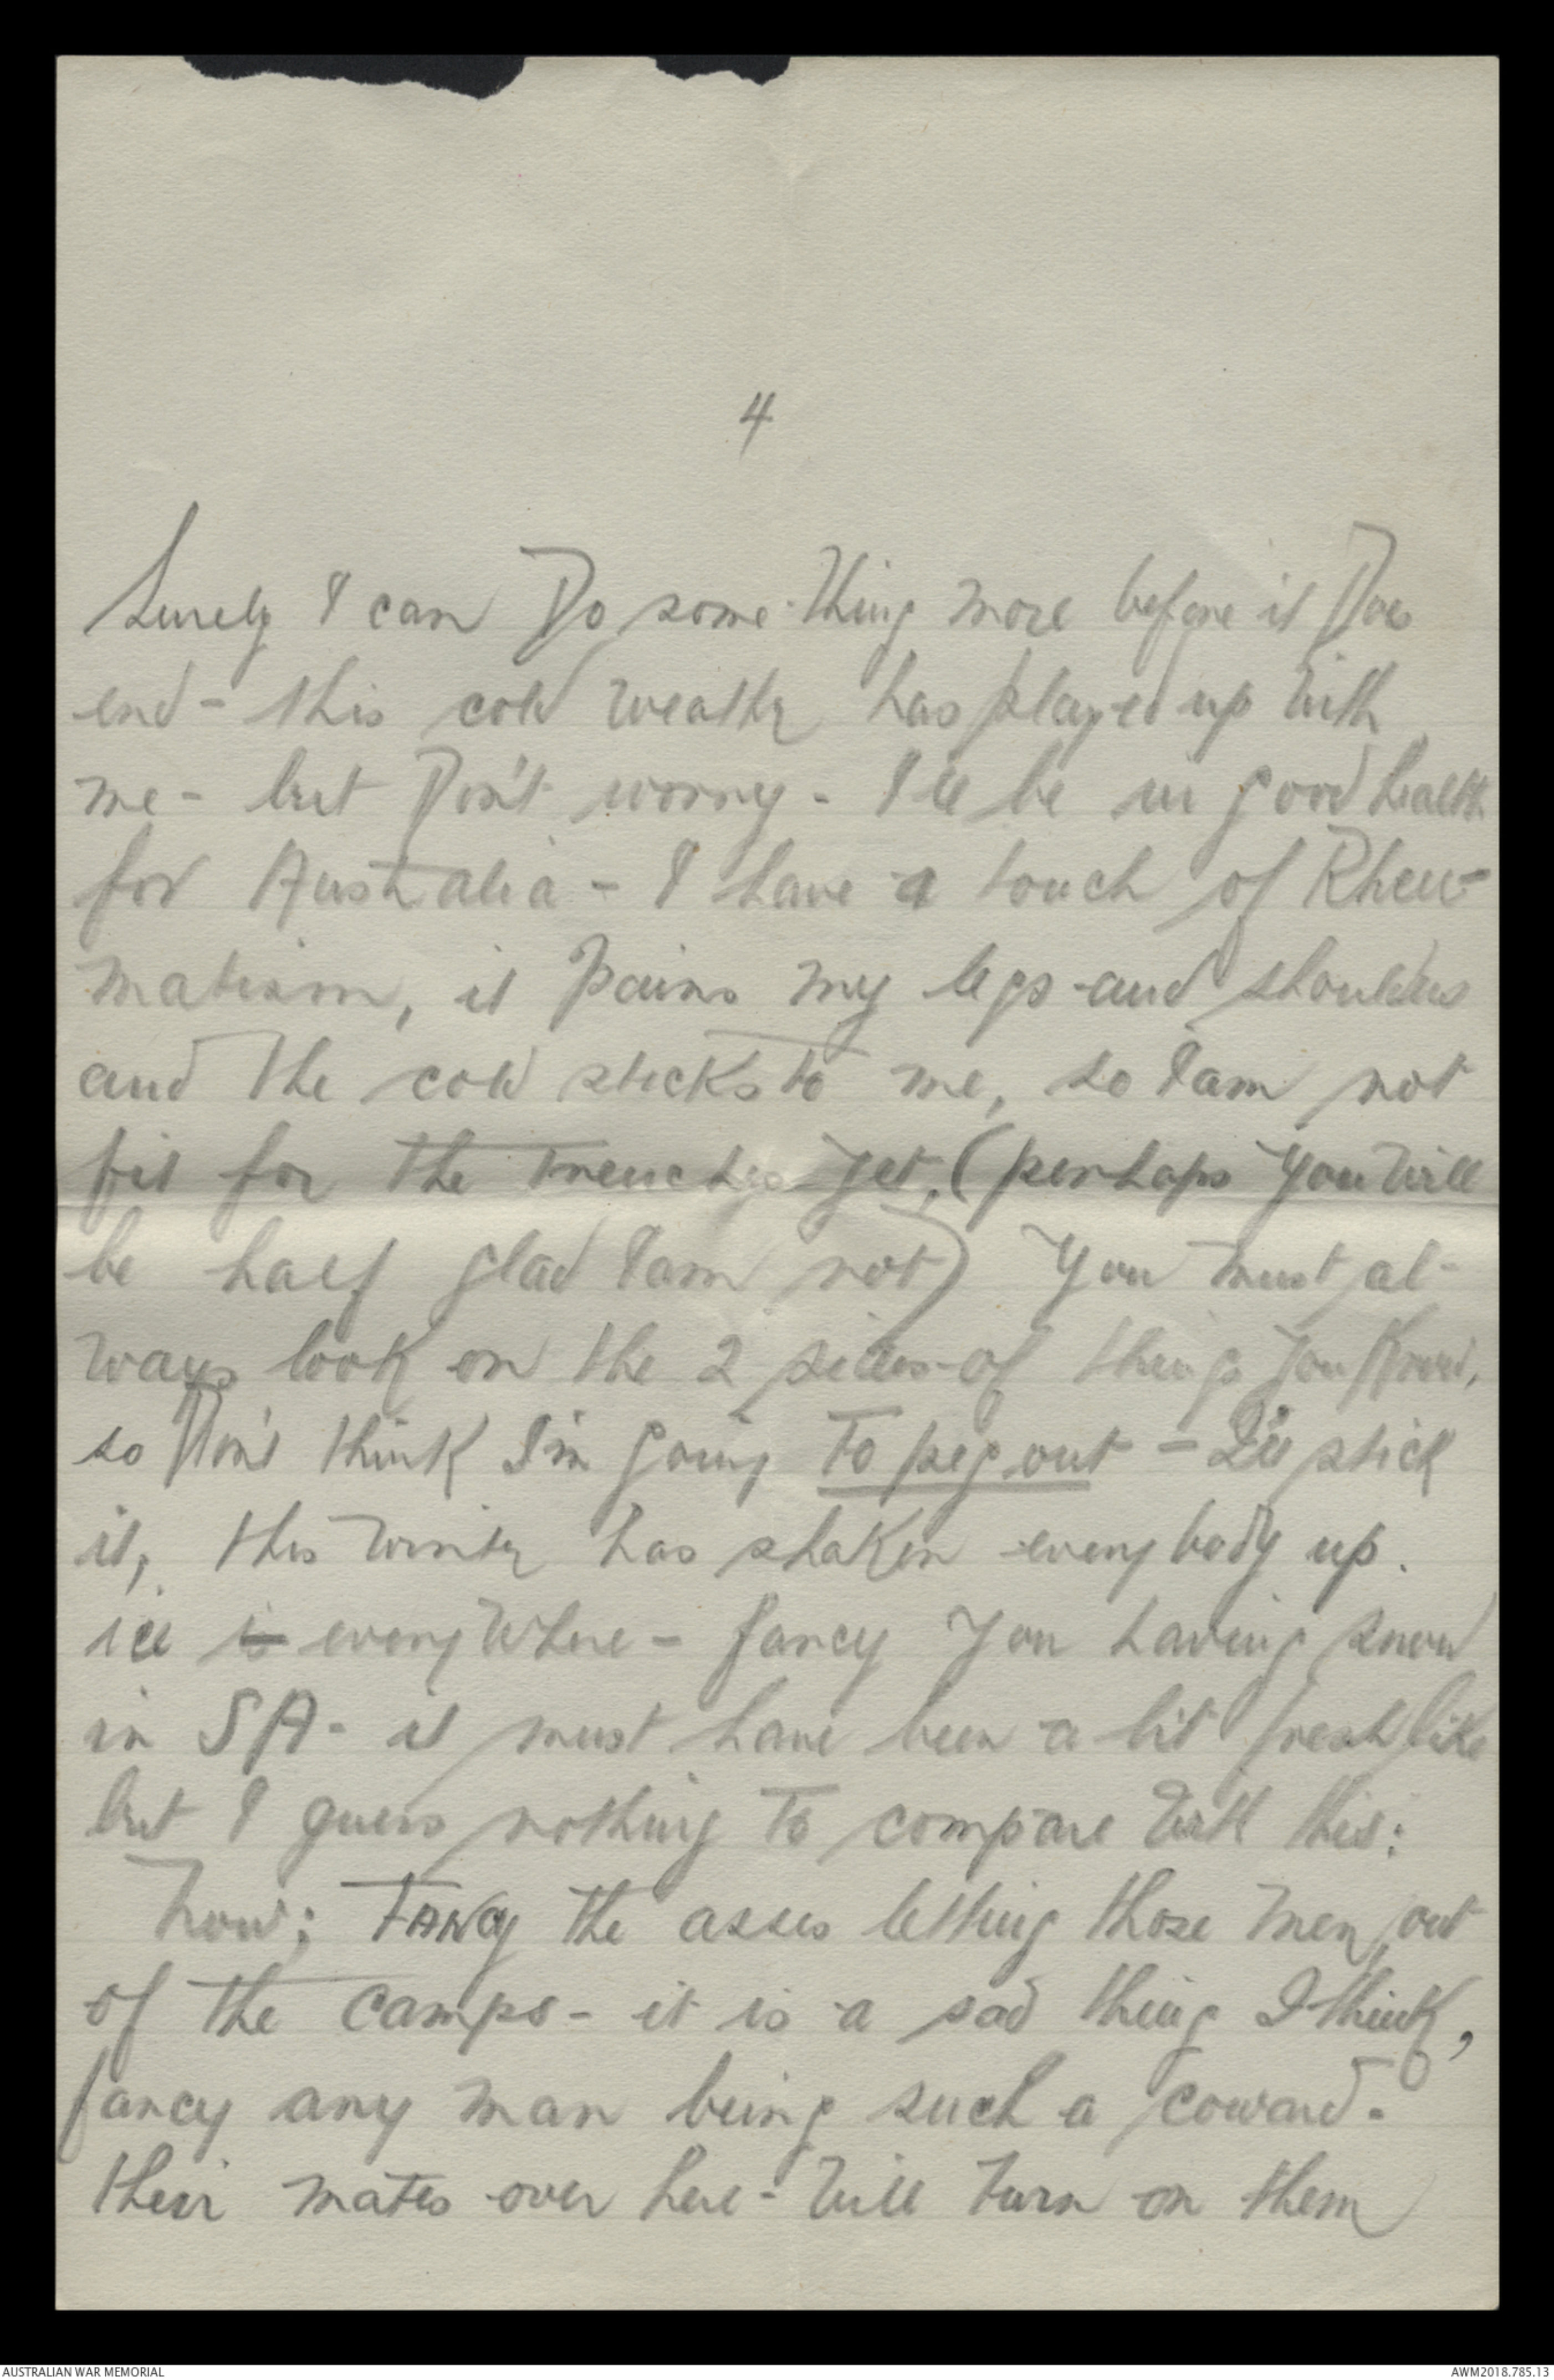 4
Surely I can Do some-thing more before it Does
end - this cold weather has played up with
me - but Don't worry - I'll be in good health
for Australia - I have a touch of Rheu-
matism, it pains my legs and shoulders
and the cold sticks to me, so I am not
fit for the trenches yet, (perhaps you will
be half glad I am not) You must al-
ways look on the 2 sides of things you know,
so Don't think I'm going to peg out - I'll stick
it, this winter has shaken everybody up.
ice is everywhere - fancy you having snow
in SA - it must have been a bit fresh like
but I guess nothing to compare with this:
Now; FANCY the asses letting those men out
of the camps - it is a sad thing I think,
fancy any man being such a coward -
their mates over here - will turn on them
AUSTRALIAN WAR MEMORIAL
AWM2018.785.13